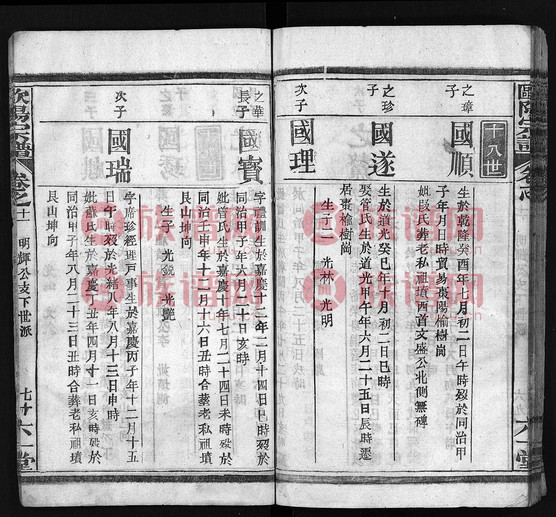 十八世
之璋
子
國順
生於乾隆癸酉年七月初二日午時歿於同治甲
子年月日時貿易棗陽榆樹崗
妣段氏葬老私祖墳西首文盛公北側無碑
之珍
子
國遂
生於道光癸巳年十月初二日巳時
娶管氏生於道光甲午年六月二十五日辰時遷
居棗榆樹崗
生子二 光林 光明
次子
國理
之華
長子
國寶
字
訓生於嘉慶十二年二月十四日巳時歿於
同治甲子年六月二十日亥時
妣管氏生於嘉慶十年七月二十四日未時歿於
同治壬申年十二月十六日丑時合葬老私祖墳
艮山坤向
生子 光銳 光
次子
國瑞
字席珍經理戸事生於嘉慶丙子年十二月十五
日午時歿於光緒八年八月十三日申時
妣蘇氏生於嘉慶丁丑年四月十一日亥時歿於
同治甲子年八月二十三日丑時合葬老私祖墳
艮山坤向
歐陽宗譜
卷之十一
明輝公支下世派
六一堂